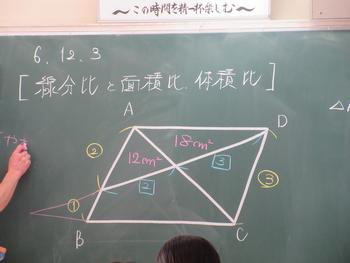 ～この時間を精一杯楽しむ～
6.12.3
[線分比と面積比、体積比]
A
D
18cm²
②
12cm²
3
2
③
①
B
C